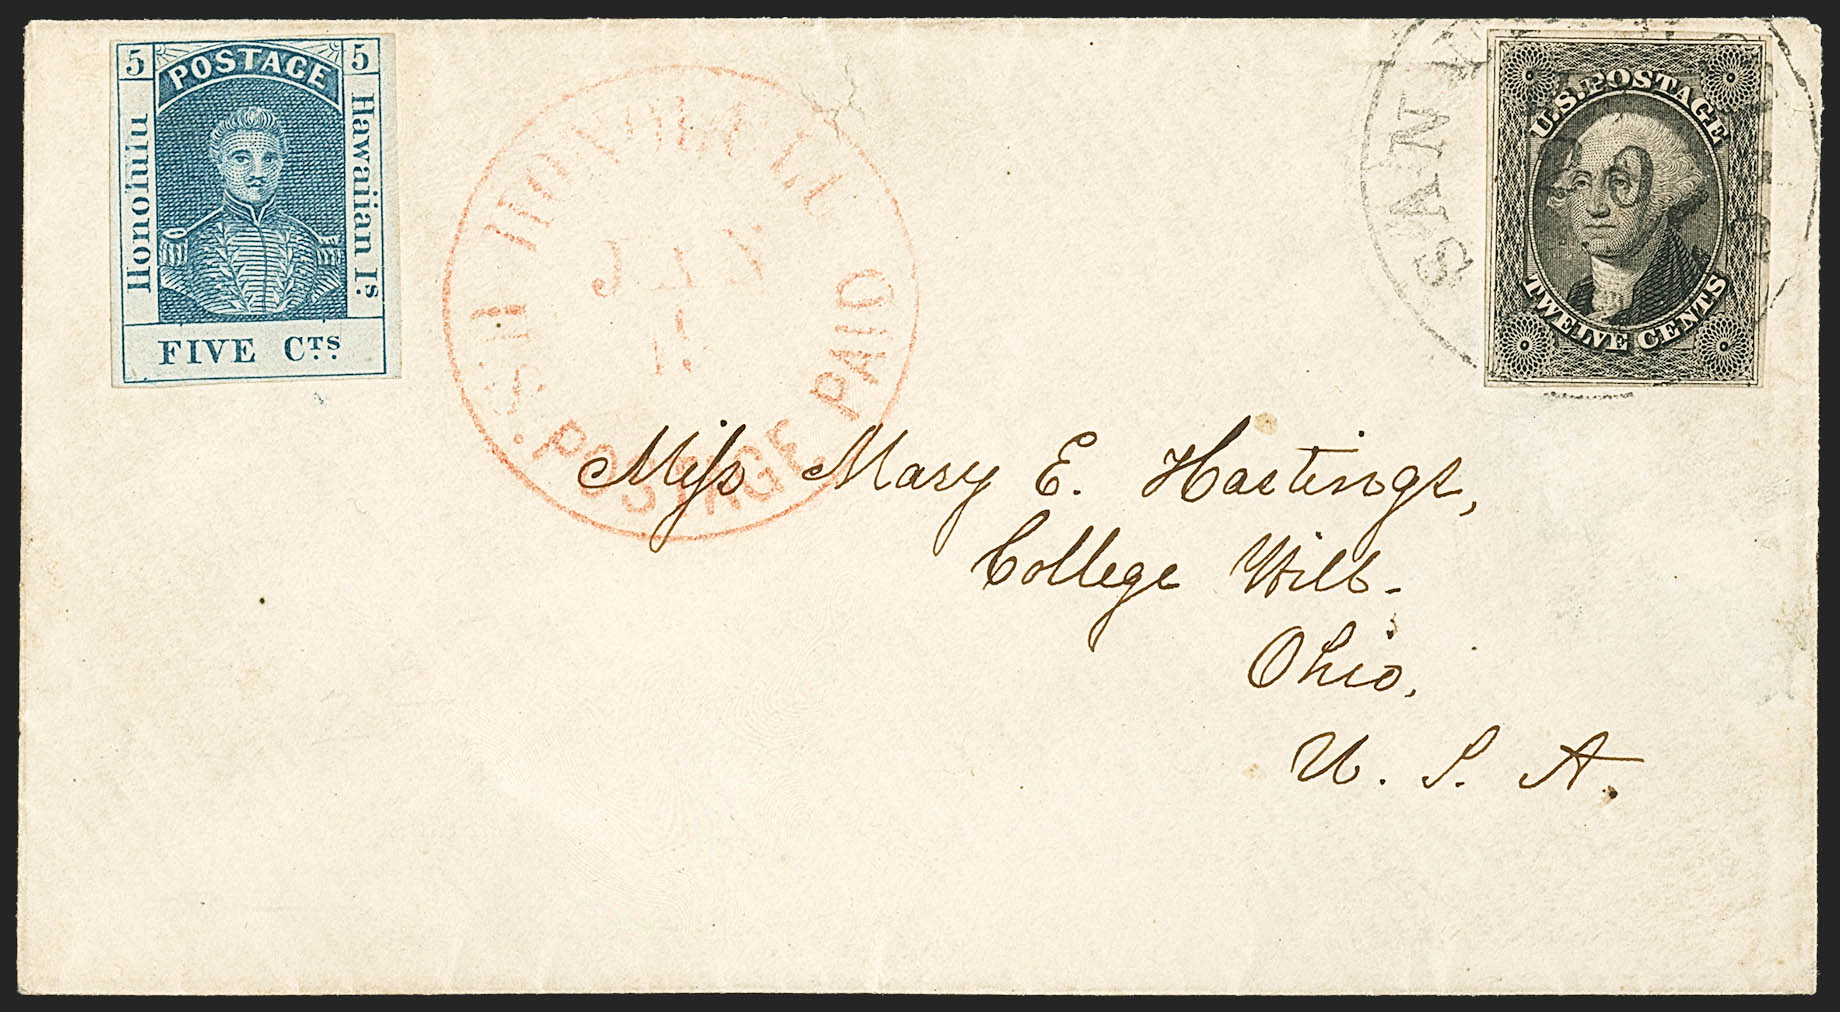 5 POSTAGE 5
Honolulu
Hawaiian Is
FIVE Cts.
HONOLULU
U.S. POSTAGE PAID
JAN
SAN
U.S. POSTAGE
TWELVE CENTS
Miss Mary E. Hastings,
College Hill.
Ohio.
U. S. A.